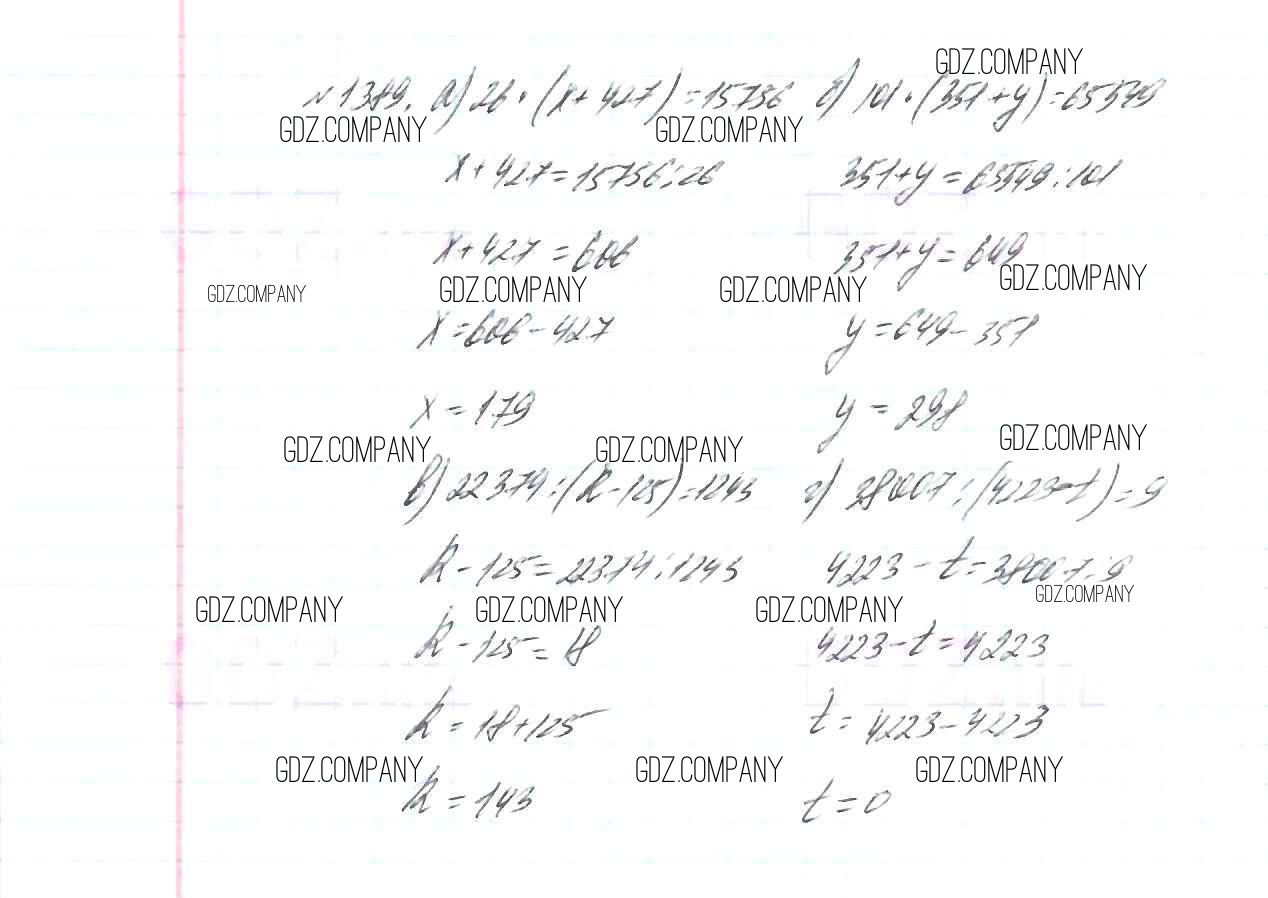 GDZ.COMPANY
№1389. а) 26·(x+427)=15756 б) 101·(351+y)=65549
GDZ.COMPANY GDZ.COMPANY
x+427=15756:26 351+y=65549:101
x+427=606 351+y=649
GDZ.COMPANY GDZ.COMPANY GDZ.COMPANY GDZ.COMPANY
x=606-427 y=649-351
x=179 y=298
GDZ.COMPANY GDZ.COMPANY GDZ.COMPANY
в) 22374:(k-125)=1243 г) 38007:(4223-t)=9
k-125=22374:1243 4223-t=38007:9
GDZ.COMPANY GDZ.COMPANY GDZ.COMPANY GDZ.COMPANY
k-125=18 4223-t=4223
k=18+125 t=4223-4223
GDZ.COMPANY GDZ.COMPANY GDZ.COMPANY
k=143 t=0